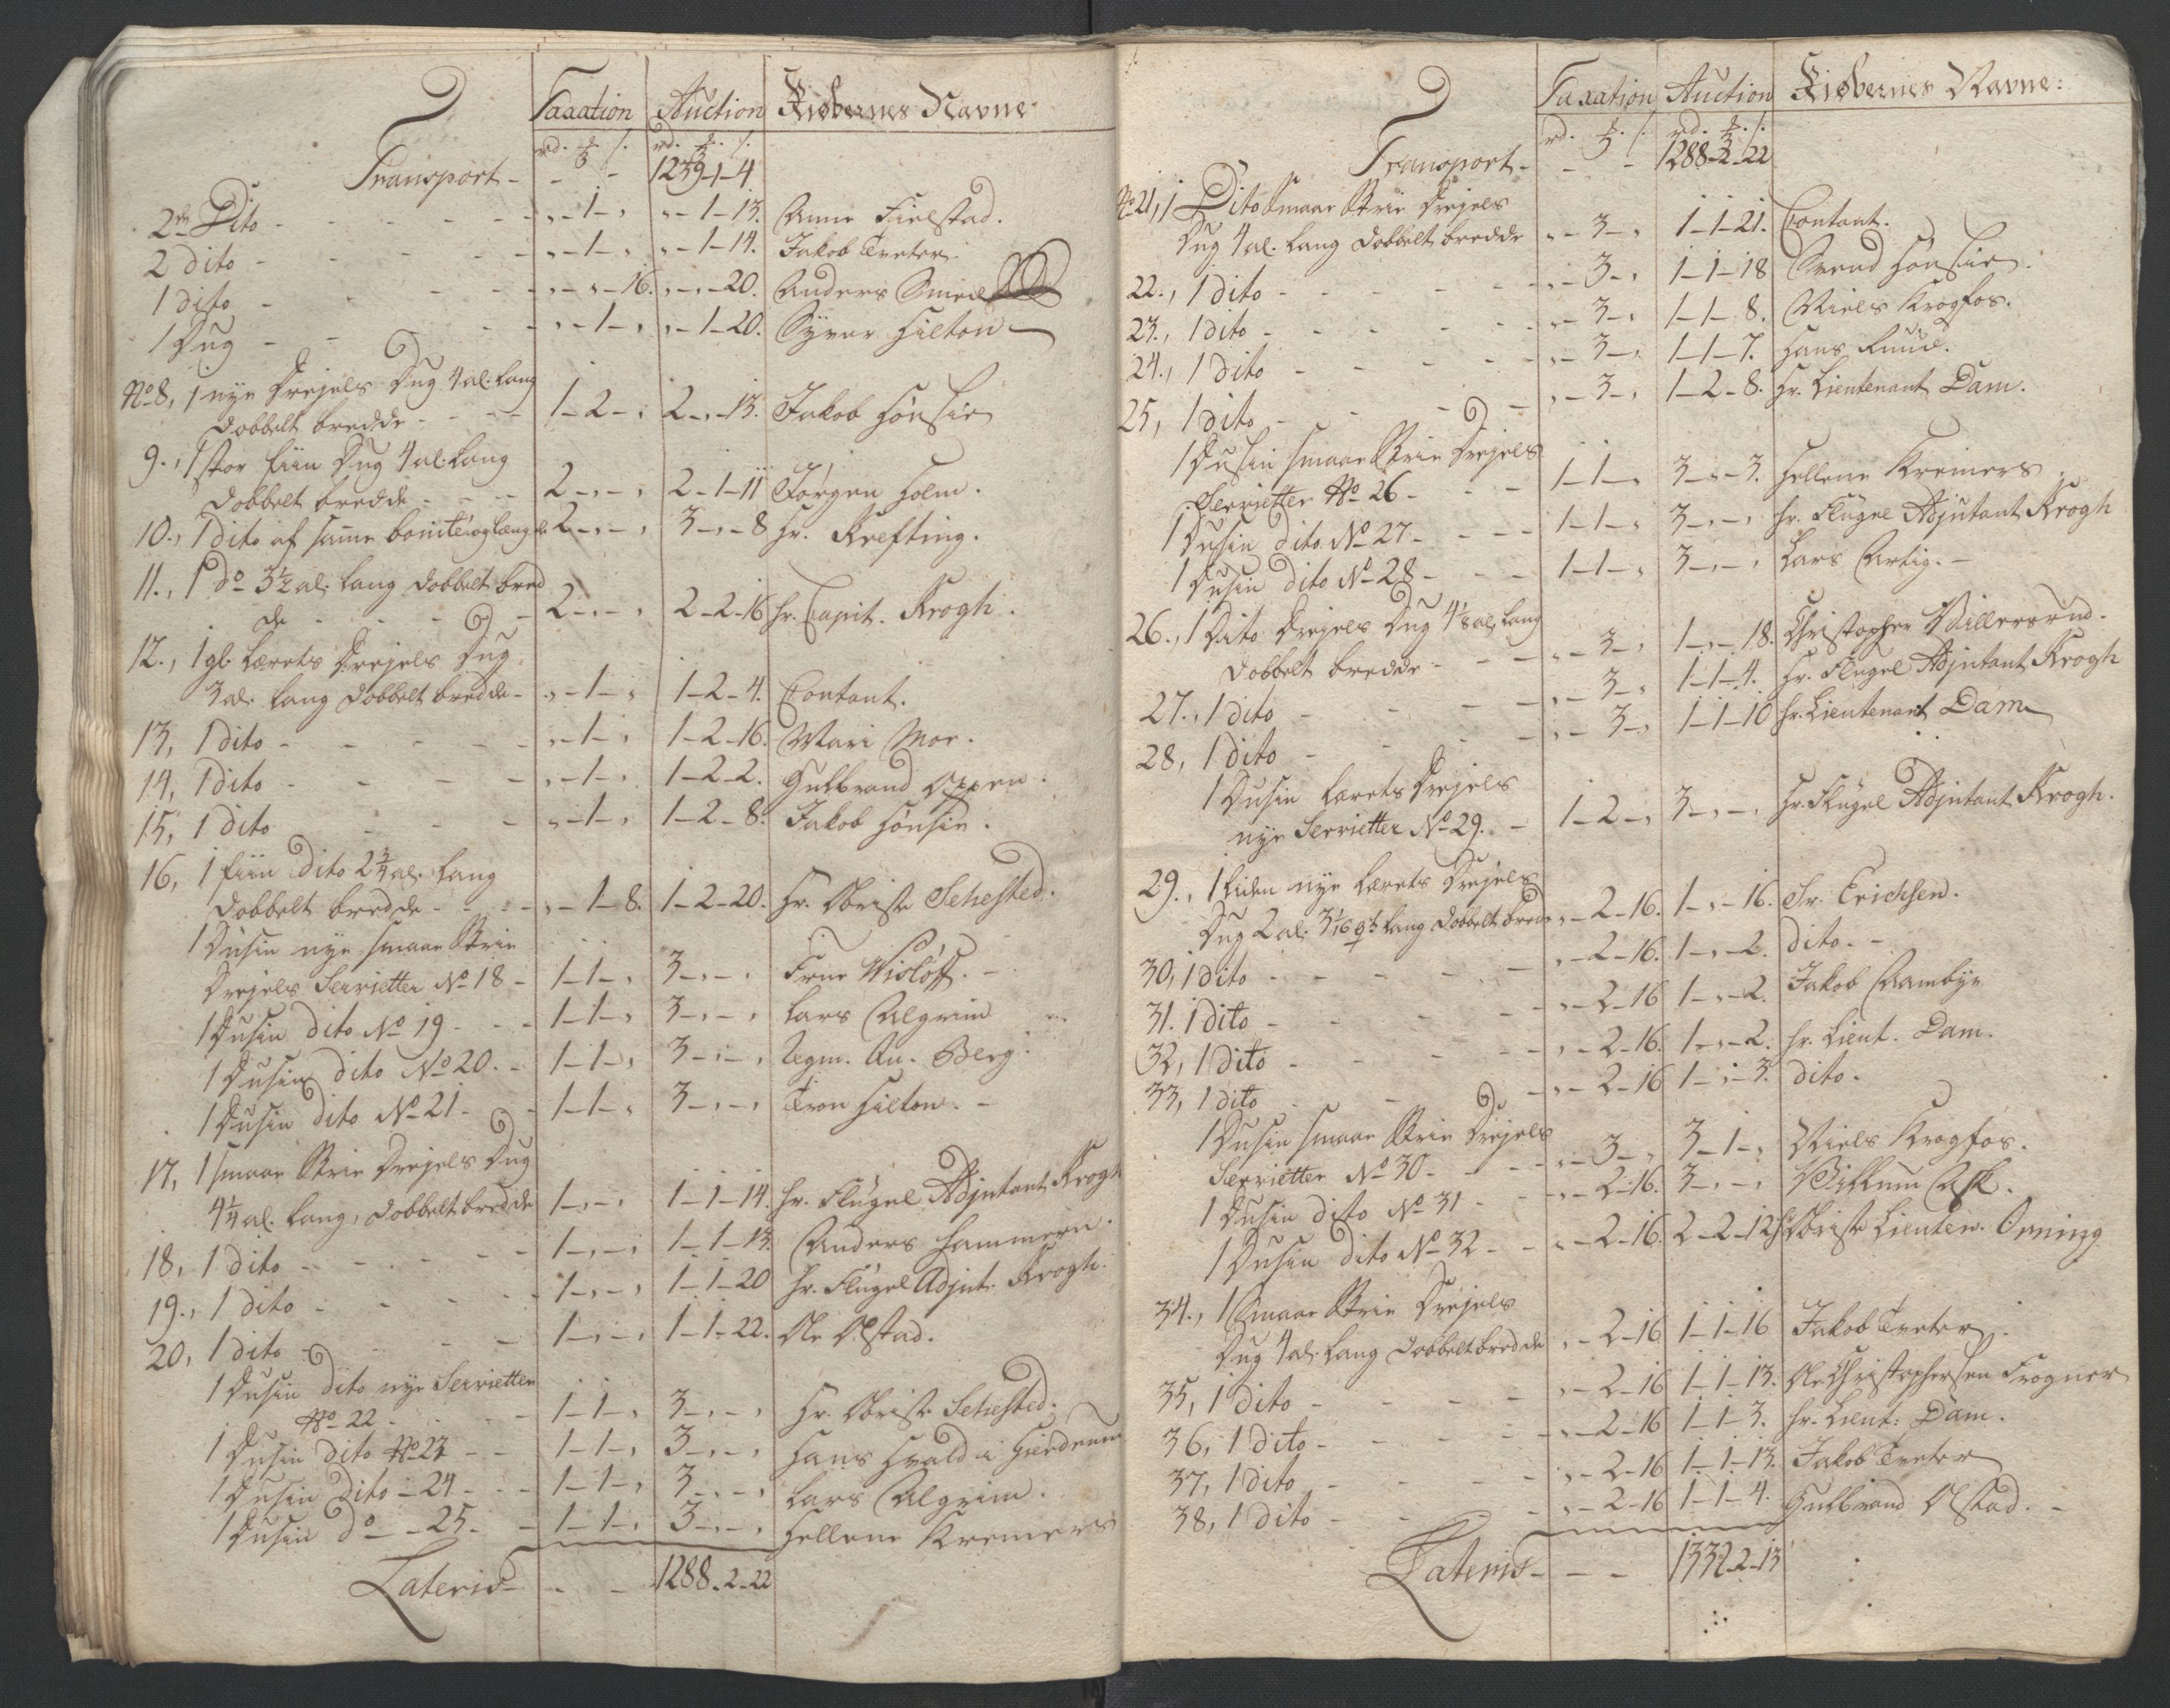 Taxation Auction Kiöbernes Navne
rd. ₰. s. rd. ₰. s.
Transport - - - 1239-1-4
2de Dito - - - „-1-„ „-1-13. Anne Fielstad.
2 dito - - - „-1-„ „-1-14. Jakob Tveter
1 dito - - - „-„-16. „-„-20. Anders Smed
1 Dug - - - „-1-„ „-1-20. Syver Hilton
No 8, 1 nye Drejels Dug 4 al. lang
dobbelt bredde - - - 1-2-„ 2-„-13. Jakob Hönsie
9., 1 stor fiin Dug 4 al. lang
dobbelt bredde - - - 2-„-„ 2-1-11 Jörgen Holm.
10., 1 dito af samme bonité og længde 2-„-„ 3-„-8 Hr. Krefting.
11., 1 do 3½ al. lang dobbelt bred
de - - - 2-„-„ 2-2-16 Hr. Capit. Krogh.
12., 1 gl. Lærets Drejels Dug
3 al. lang dobbelt bredde - „-1-„ 1-2-4. Contant.
13, 1 dito - - - „-1-„ 1-2-16. Mari Moe.
14, 1 dito - - - „-1-„ 1-2-2. Gulbrand Oppen.
15, 1 dito - - - „-1-„ 1-2-8. Jakob Hönsie.
16, 1 fiin dito 2¾ al. lang
dobbelt bredde - - - „-1-8. 1-2-20. Hr. Obriste Sehested.
1 Dusin nye smaae Strie
Drejels Servietter No 18 - 1-1-„ 3-„-„ Frue Wislöff. -
1 Dusin dito No 19 - - - 1-1-„ 3-„-„ Lars Algrim
1 Dusin dito No 20. - 1-1-„ 3-„-„ An. Berg.
1 Dusin dito No 21 - - 1-1-„ 3-„-„ Tron Hilton. -
17, 1 smaae Strie Drejels Dug
4¼ al. lang, dobbelt bredde 1-„-„ 1-1-14. Hr. Flügel Adjutant Krogh
18, 1 dito - - - 1-„-„ 1-1-13. Anders Hammeren.
19., 1 dito - - - 1-„-„ 1-1-20 Hr. Flügel Adjut. Krogh.
20, 1 dito - - - 1-„-„ 1-1-22. Ole Olstad.
1 Dusin dito nye Servietter
No 22 - - - 1-1-„ 3-„-„ Hr. Obriste Sehested.
1 Dusin dito No 23 - - 1-1-„ 3-„-„ Hans Hvald i Gierdrum
1 Dusin dito - 24 - - - 1-1-„ 3-„-„ Lars Algrim.
1 Dusin do - - 25. - 1-1-„ 3-„-„ Hellene Kremers
Lateris - - - 1288-2-22
Taxation Auction Kiöbernes Navne:
rd. ₰. s. rd. ₰. s.
Transport - - - 1288-2-22
No 21, 1 Dito Smaae Strie Drejels
Dug 4 al. lang dobbelt bredde „-3-„ 1-1-21. Contant.
22., 1 dito - - - „-3-„ 1-1-18 Svend Hönsie.
23., 1 dito - - - „-3-„ 1-1-8. Niels Krogfos.
24., 1 dito - - - „-3-„ 1-1-7. Hans Ruud.
25, 1 dito - - - „-3-„ 1-2-8. Hr. Lieutenant Dam.
1 Dusin smaae Strie Drejels
Servietter No 26 - - - 1-1-„ 3-„-3. Hellene Kremers.
1 Dusin dito No 27 - - - 1-1-„ 3-„-„ Hr. Flügel Adjutant Krogh
1 Dusin dito No 28 - - 1-1-„ 3-„-„ Lars Artig. -
26., 1 Dito Drejels Dug 4⅛ al. lang
dobbelt bredde - - - „-3-„ 1-„-18. Christopher Villerrud.
27., 1 dito - - - „-3-„ 1-1-4. Hr. Flügel Adjutant Krogh
28, 1 dito - - - „-3-„ 1-1-10 Hr. Lieutenant Dam
1 Dusin Lærets Drejels
nye Servietter No 29. - 1-2-„ 3-„-„ Hr. Flügel Adjutant Krogh.
29., 1 Liden nye Lærets Drejels
Dug 2 al. lang dobbelt bredde „-2-16. 1-„-16. Sr. Erichsen.
30, 1 dito - - - „-2-16. 1-„-2. dito. -
31. 1 dito - - - „-2-16 1-„-2. Jakob Aambye
32, 1 dito - - - „-2-16. 1-„-2. Hr. Lieut. Dam.
33, 1 dito - - - „-2-16 1-„-3. dito.
1 Dusin smaae Strie Drejels
Servietter No 30 - - - „-3-„ 3-1-„ Niels Krogfos.
1 Dusin dito No 31 - - „-2-16. 3-„-„ Villum Ask.
1 Dusin dito No 32 - - „-2-16. 2-2-12 Hr. Obriste Lieuten. Orning
34., 1 Smaae Strie Drejels
Dug 4 al. lang dobbelt bredde „-2-16 1-1-16 Jakob Tveter.
35, 1 dito - - - „-2-16 1-1-13. Ole Christophersen Frogner
36, 1 dito - - - „-2-16 1-1-3. Hr. Lieut: Dam.
37, 1 dito - - - „-2-16 1-1-13. Jakob Tveter
38, 1 dito - - - „-2-16 1-1-4. Gulbrand Olstad. -
Lateris - - - 1332-2-13